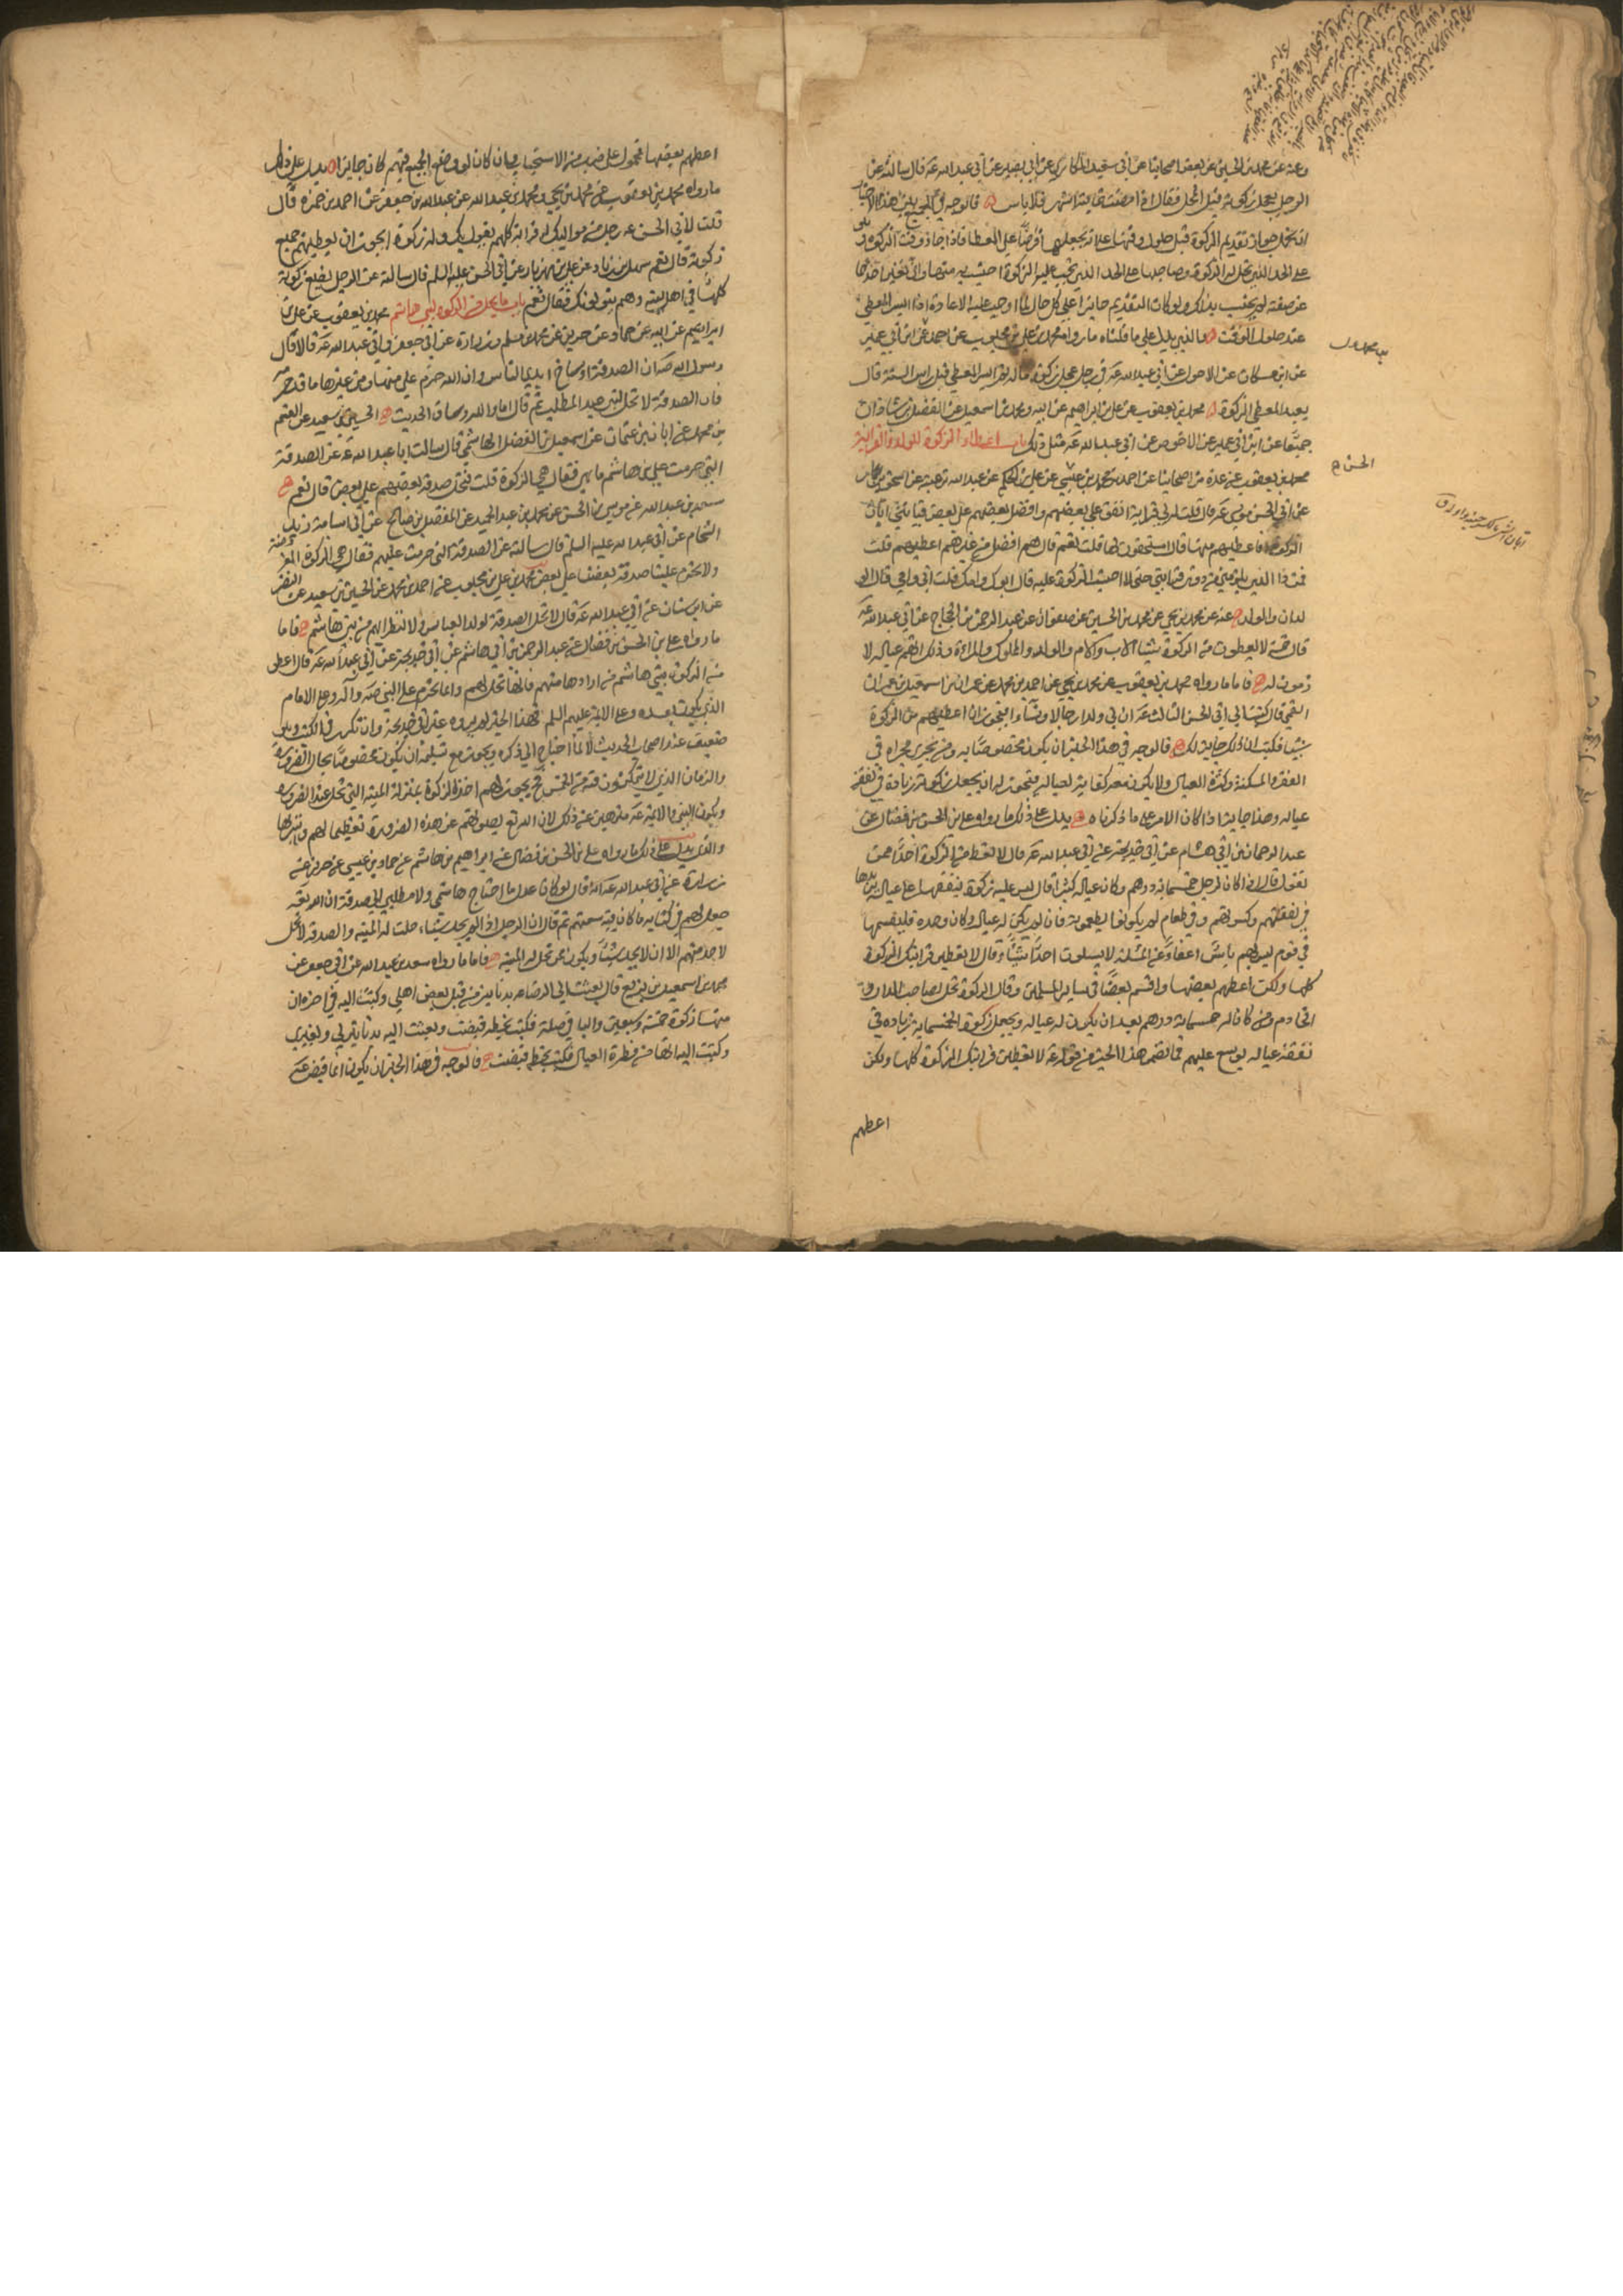 وعنه عن محمد بن الحسين عن بعض اصحابنا عن ابي سعيد المكاري عن ابي بصير عن ابي عبد الله عه قال سالته عن
الرجل يعجل زكوته قبل المحل فقال اذا مضت ثمانية اشهر فلا باس فالوجه في الجمع بين هذه الاخبار
ان نحمل جواز تقديم الزكوة قبل حلول وقتها على انه يجعلها قرضا على المعطا فاذا جاز وقت الزكوة وهو
على الحد الذي تحل له الزكوة وصاحبها على الحد الذي يجب عليه الزكوة احتسب به منها وان تغير احدهما
عن صفته لم يحتسب بذلك ولو كان التقديم جايزا على كل حال لما وجب عليه الاعادة اذا ايسر المعطى
عند حلول الوقت والذي يدل على ما قلناه ما رواه محمد بن علي بن محبوب عن احمد عن ابن ابي عمير
عن ابن مسكان عن الاحول عن ابي عبد الله عه في رجل عجل زكوة ماله ثم ايسر المعطى قبل راس السنة قال
يعيد المعطي الزكوة محمد بن يعقوب عن علي بن ابراهيم عن ابيه ومحمد بن اسمعيل عن الفضل بن شاذان
جميعا عن ابن ابي عمير عن الاحول عن ابي عبد الله عه مثل ذلك باب اعطاء الزكوة للولد والقرابة
محمد بن يعقوب عن عدة من اصحابنا عن احمد بن محمد بن عيسى عن علي بن الحكم عن عبد الله بن عتبة عن اسحق بن عمار
عن ابي الحسن موسى عه قال قلت له لي قرابة انفق على بعضهم وافضل بعضهم على بعض فياتيني ابان
الزكوة افاعطيهم منها قال استحقون لها قلت نعم قال هم افضل من غيرهم اعطيهم قلت
فمن ذا الذي يلزمني من ذوي قرابتي حتى لا احتسب الزكوة عليه قال ابوك وامك قلت ابي وامي قال الو
لدان والولد عنه عن محمد بن يحيى عن محمد بن الحسين عن صفوان عن عبد الرحمن بن الحجاج عن ابي عبد الله عه
قال خمسة لا يعطون من الزكوة شيئا الاب والام والولد والمملوك والمراة وذلك انهم عياله لا
زمون له فاما ما رواه محمد بن يعقوب عن محمد بن يحيى عن احمد بن محمد عن عمران بن اسمعيل بن عمران
القمي قال كتبت الى ابي الحسن الثالث عه ان لي ولدا رجالا ونساء افيجوز ان اعطيهم من الزكوة
شيئا فكتب ان ذلك جايز لك فالوجه في هذا الخبر ان يكون مختصا به ومن يجري مجراه في
الفقر والمسكنة وكثرة العيال ولا يكون معه كفاية لعياله فيجوز له ان يجعل زكوته زيادة في نفقة
عياله وهذا جايز اذا كان الامر على ما ذكرناه يدل على ذلك ما رواه علي بن الحسن بن فضال عن
عبد الرحمان بن ابي هشام عن ابي خديجة عن ابي عبد الله عه قال لا تعط من الزكوة احدا ممن
تعول وقال اذا كان لرجل خمسمائة درهم وكان عياله كثيرا قال ليس عليه زكوة ينفقها على عياله يزيدها
في نفقتهم وكسوتهم وفي طعام لم يكونوا يطعمونه فان لم يكن له عيال وكان وحده فليقسمها
في قوم ليس بهم باس اعفاء عن المسئلة لا يسئلون احدا شيئا وقال لا تعطين قرابتك الزكوة
كلها ولكن اعطهم بعضها واقسم بعضا في ساير المسلمين وقال الزكوة تحل لصاحب الدار و
الخادم ومن كان له خمسمائة درهم بعد ان يكون له عيال ويجعل زكوة الخمسمائة زيادة في
نفقة عياله يوسع عليهم فما تضمن هذا الخبر من قوله عه لا تعطين قرابتك الزكوة كلها ولكن
اعطهم
الحسن
اعطهم بعضها فمحمول على ضرب من الاستحباب وان كان لو وضع الجميع فيهم كان جايزا يدل على ذلك
ما رواه محمد بن يعقوب عن محمد بن يحيى ومحمد بن عبد الله عن عبد الله بن جعفر عن احمد بن حمزة قال
قلت لابي الحسن عه رجل من مواليك له قرابة كلهم يقول بك وله زكوة ايجوز ان يعطيهم جميع
زكوته قال نعم سهل بن زياد عن علي بن مهزيار عن ابي الحسن عليه السلم قال سالته عن الرجل يضع زكوته
كلها في اهل بيته وهم يتولونك فقال نعم باب ما يحل من الزكوة لبني هاشم محمد بن يعقوب عن علي بن
ابراهيم عن ابيه عن حماد عن حريز عن محمد بن مسلم وزرارة عن ابي جعفر وابي عبد الله عه قالا قال
رسول الله صه ان الصدقة اوساخ ايدي الناس وان الله حرم علي منها ومن غيرها ما قد حرمه
فان الصدقة لا تحل لبني عبد المطلب ثم قال اما والله وساق الحديث الحسين بن سعيد عن القسم
بن محمد عن ابان بن عثمان عن اسمعيل بن الفضل الهاشمي قال سالت ابا عبد الله عه عن الصدقة
التي حرمت على بني هاشم ما هي فقال هي الزكوة قلت فتحل صدقة بعضهم على بعض قال نعم
سعد بن عبد الله عن موسى بن الحسن عن محمد بن عبد الحميد عن المفضل بن صالح عن ابي اسامة زيد
الشحام عن ابي عبد الله عليه السلم قال سالته عن الصدقة التي حرمت عليهم فقال هي الزكوة المفروضة
ولا يحرم علينا صدقة بعضنا على بعض محمد بن علي بن محبوب عن احمد بن محمد عن الحسين بن سعيد عن النضر
عن ابن سنان عن ابي عبد الله عه قال لا تحل الصدقة لولد العباس ولا لنظرائهم من بني هاشم فاما
ما رواه علي بن الحسن بن فضال عن عبد الرحمن بن ابي هاشم عن ابي خديجة عن ابي عبد الله عه قال اعطى
من الزكوة بني هاشم من ارادها منهم فانها تحل لهم وانما تحرم على النبي صه وآله وعلى الامام
الذي يكون بعده وعلى الائمة عليهم السلم فهذا الخبر لم يروه غير ابي خديجة وان تكرر في الكتب وهو
ضعيف عند اصحاب الحديث لما احتاج الى ذكره ويجوز مع تسليمه ان يكون مختصا بحال الضرورة
والزمان الذي لا يتمكنون فيه من الخمس فح يجوز لهم اخذ الزكوة بمنزلة الميتة التي تحل عند الضرورة
ويكون النبي والائمة عه منزهين عن ذلك لان الله تع يصونهم عن هذه الضرورة تعظيما لهم وتنزيها
والذي يدل على ذلك ما رواه علي بن الحسن بن فضال عن ابراهيم بن هاشم عن حماد بن عيسى عن حريز عن
زرارة عن ابي عبد الله عه انه قال لو كان عدل ما احتاج هاشمي ولا مطلبي الى صدقة ان الله تعه
جعل لهم في كتابه ما كان فيه سعتهم ثم قال ان الرجل اذا لم يجد شيئا حلت له الميتة والصدقة لا تحل
لاحد منهم الا ان لا يجد شيئا ويكون ممن تحل له الميتة فاما ما رواه سعد بن عبد الله عن ابي جعفر عن
محمد بن اسمعيل بن بزيع قال بعثت الى الرضا عه بدنانير من قبل بعض اهلي وكتبت اليه في اخره ان
منها زكوة خمسة وسبعين والباقي صلة فكتب بخطه قبضت وبعثت اليه بدنانير لي ولغيري
وكتبت اليه انها من فطرة العيال فكتب بخطه قبضت فالوجه في هذا الخبر ان يكون انما قبض عه